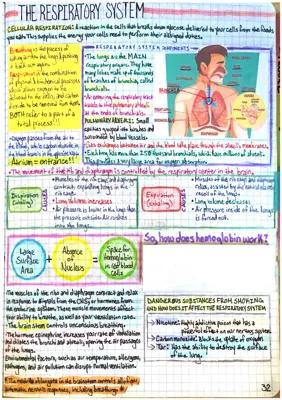 THE RESPIRATORY SYSTEM
CELLULAR RESPIRATION: A reaction in the cells that breaks down glucose delivered to your cells from the foods
This supplies the energy your cells need to perform their assigned duties.
Breathing is the process of
taking air into the lungs & pushing
it back out again.
Respiration is the combination
of physical & biochemical processes
which allow oxygen to be
delivered to the cells, and carbon
dioxide to be removed from them.
BOTH refer to a part of a
total process!!
RESPIRATORY SYSTEM COMPONENTS
The lungs are the MAIN
respiratory organs. They have
many lobes made up of thousands
of branches of bronchi, called
bronchioles.
Air entering the respiratory tract
travels to the pulmonary alveoli at
the ends of bronchioles.
PULMONARY ALVEOLI: Small
cavities grouped into bunches and
surrounded by blood vessels.
Gas exchanges between air and the blood take place through the alveoli membranes.
Each lung has more than 250 thousand bronchioles, which have millions of alveoli.
This provides a very large area for oxygen absorption.
Oxygen passes from the air to
the blood, while carbon dioxide in
the blood passes in the opposite
The movement of the rib and diaphragm is controlled by the respiratory center in the brain.
Inspiration
(inhaling)
CAUSES
Muscles of the ribs and diaphragm
contract, expanding lungs in the
process.
Lung volume increases
Air pressure is lower in the lungs than
the pressure outside. Air rushes
into the lungs.
Expiration
(exhaling)
CAUSES
Muscles of the ribs and diaphragm
relax, assisted by the natural elastic
recoil of the lungs.
Lung volume declines
Air pressure inside of the lungs
is forced out.
Large
Surface
Area
+
Absence
of
Nucleus
=
Space for
hemoglobin
in red blood
cells
So, how does hemoglobin work?
The muscles of the ribs and diaphragm contract and relax
in response to signals from the CNS or hormones from
the endocrine system. These muscle movements affect
your ability to breathe, as well as your ventilation rate.
The brain stem controls unconscious breathing.
The hormone epinephrine increases your rate of inhalation
and dilates the bronchi and alveoli, opening the air passages
of the lungs.
Environmental factors, such as air temperature, allergens,
pathogens, and air pollution can disrupt normal ventilation.
The medulla oblongata in the brainstem controls all of your
automatic nervous responses, including breathing.
DANGEROUS SUBSTANCES FROM SMOKING
AND HOW DOES IT AFFECT THE RESPIRATORY SYSTEM
Nicotine: Highly addictive poison that has a
powerful effect on our nervous system.
Carbon monoxide: Blocks the uptake of oxygen.
Tar: Has the ability to destroy the surface
of the lung.
32